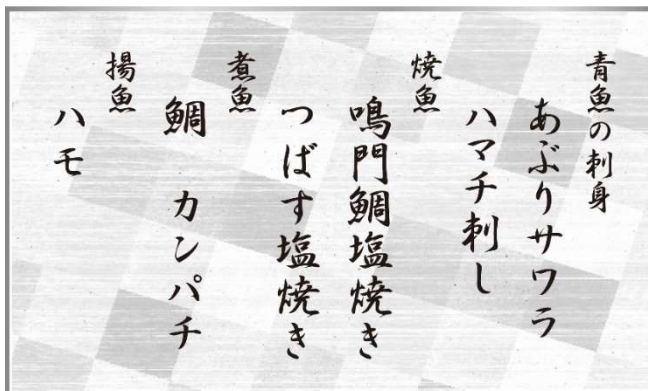 青魚の刺身
あぶりサワラ
ハマチ刺し
焼魚
鳴門鯛塩焼き
つばす塩焼き
煮魚
鯛　カンパチ
揚魚
ハモ